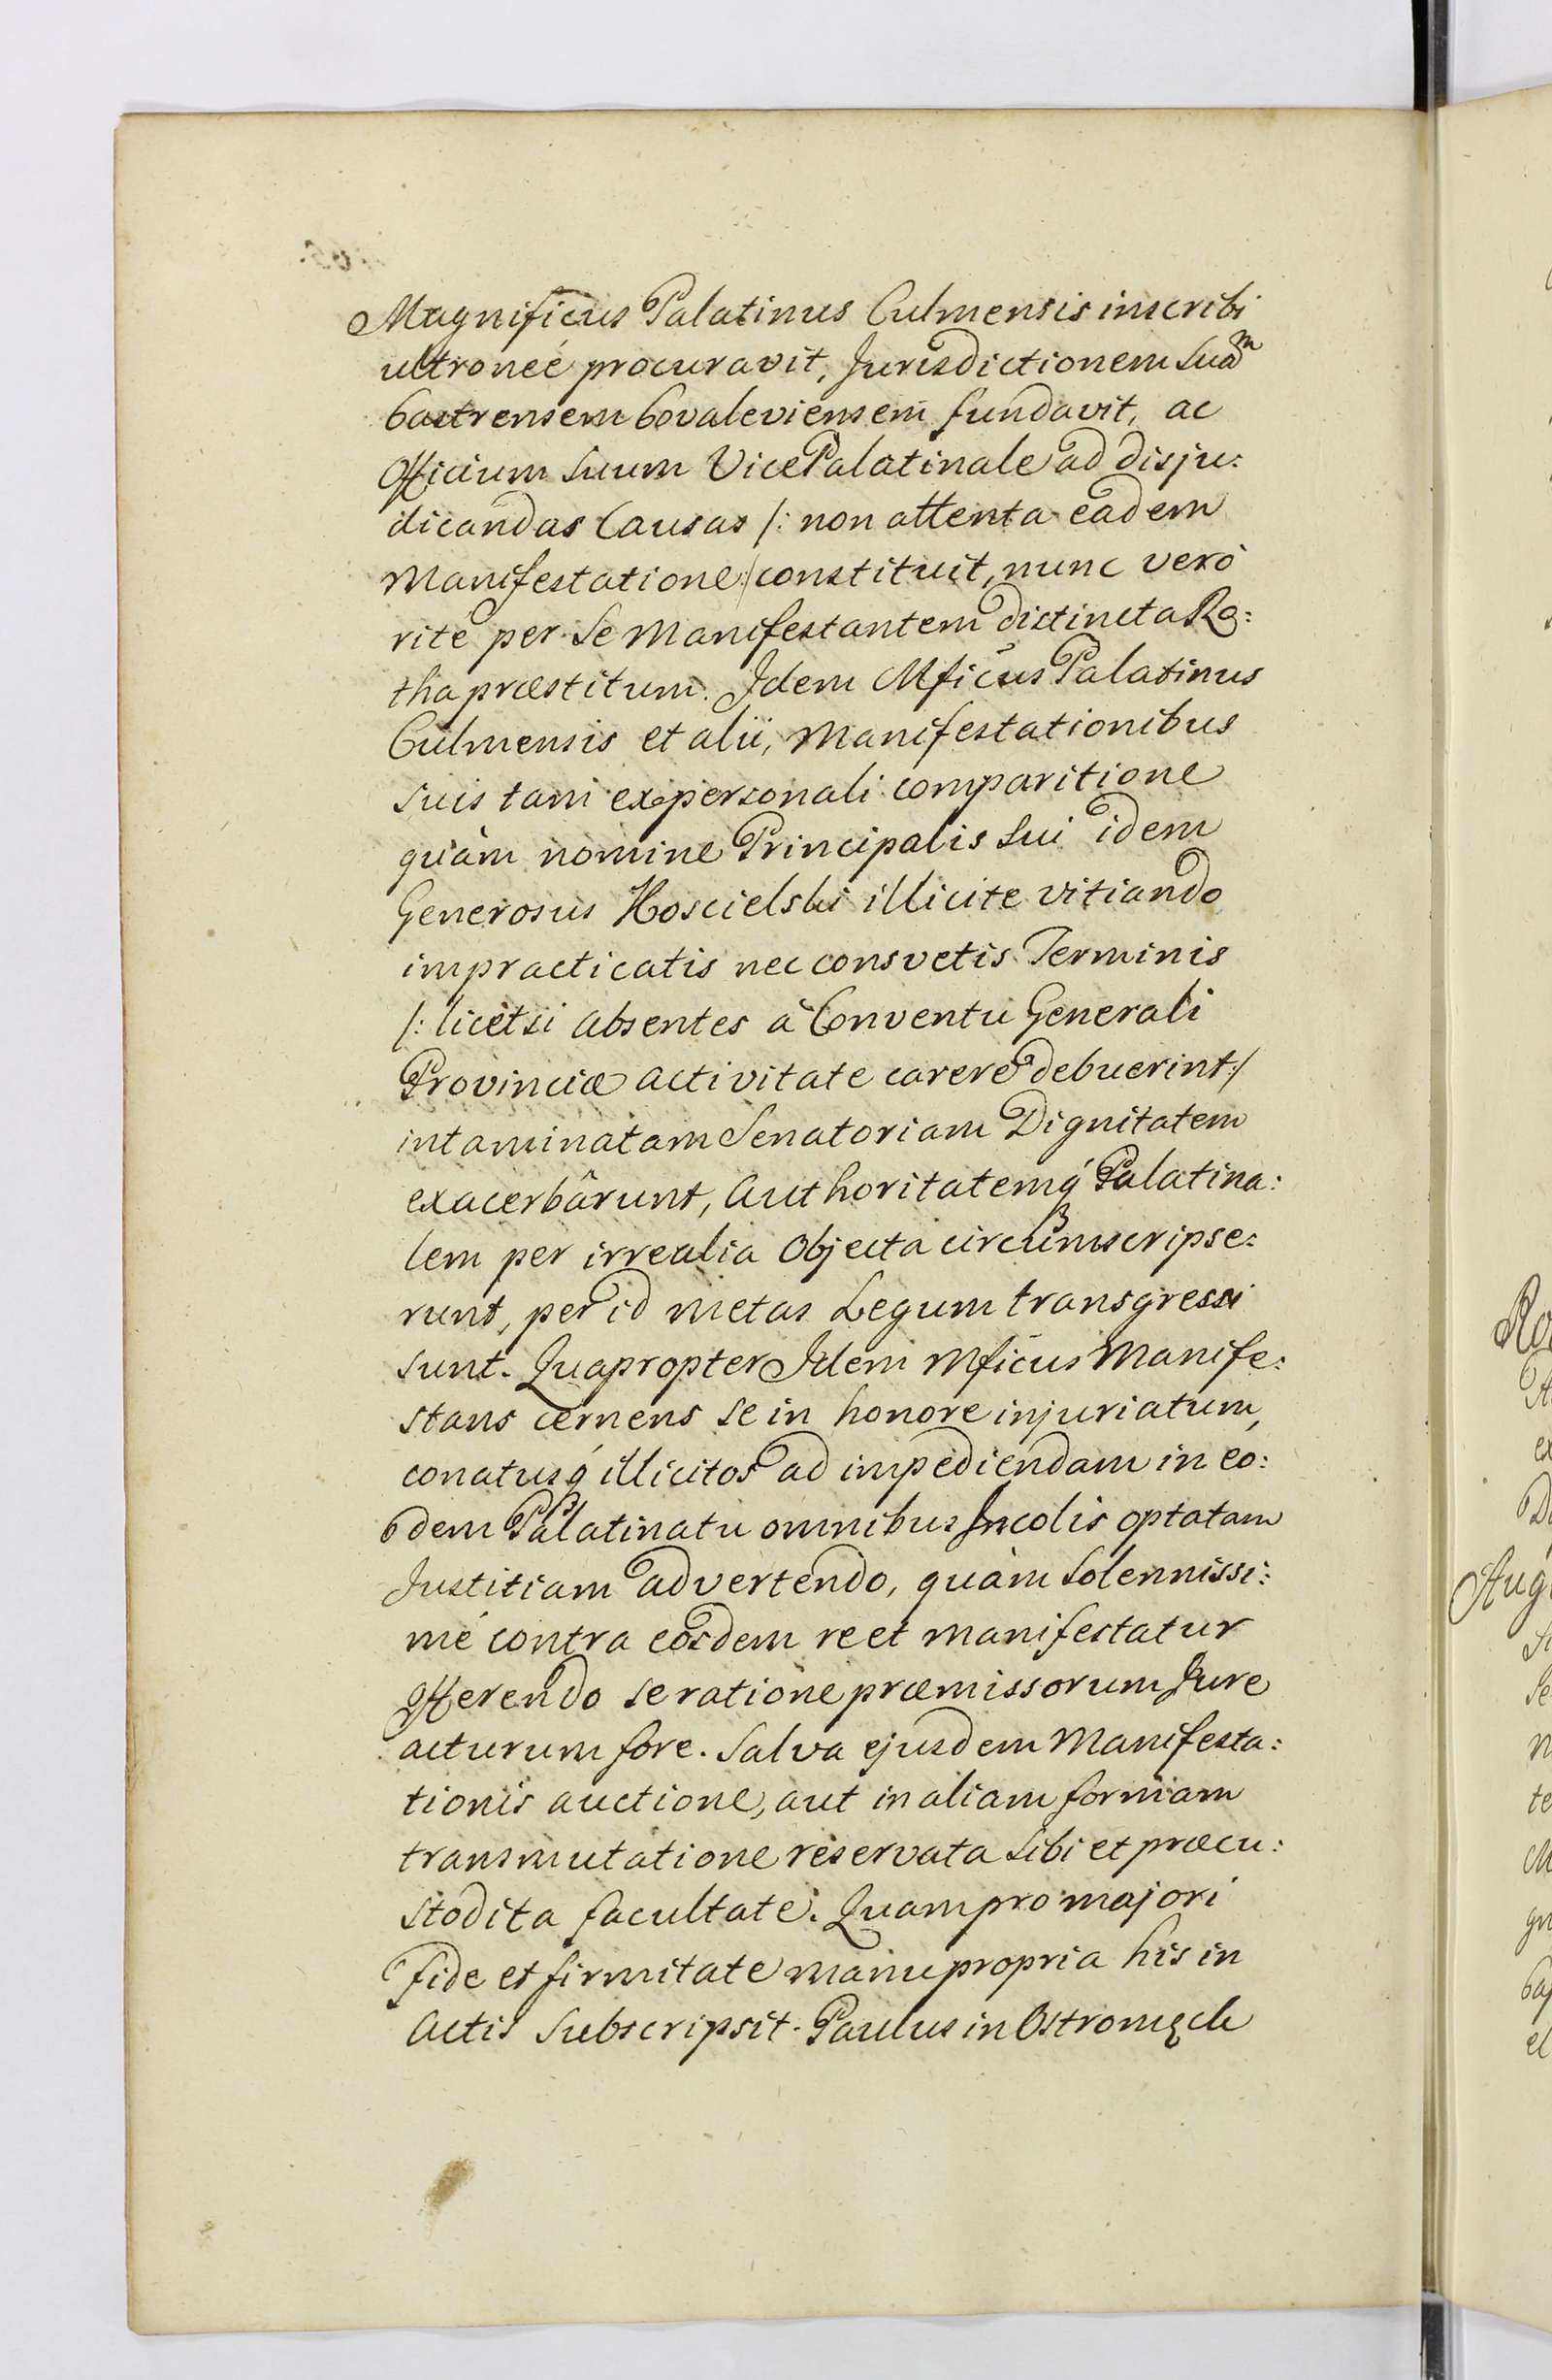 Magnificus Palatinus Culmensis inscribi
ultroneé procuravit, Jurisdictionem Suam
Castrensem Covaleviensem fundavit, ac
Officium Suum VicePalatinale ad disju:
dicandas Causas /: non attenta eadem
Manifestatione :/ constituit, nunc verò
rite per Se Manifestantem distincta Ro:
tha præstitum. Idem Mficus Palatinus
Culmensis et alii, Manifestationibus
suis tam ex personali comparitione
quàm nomine Principalis Sui idem
Generosus Koscielski illicite vitiando
impracticatis nec consvetis Terminis
/: licet si absentes à Conventu Generali
Provinciæ activitate carere debuerint :/
intaminatam Senatoriam Dignitatem
exacerbârunt, Authoritatemq́ Palatina:
lem per irrealia Objecta circumscripse:
runt, per id metas Legum transgressi
sunt. Quapropter Idem Mficus Manife:
stans cernens se in honore injuriatum,
conatusq́ illicitos ad impediendam in eo:
dem Palatinatu omnibus Incolis optatam
Justitiam advertendo, quàm Solennissi:
mé contra eosdem reet manifestatur
Offerendo se ratione præmissorum Jure
acturum fore. Salva ejusdem Manifesta:
tionis auctione, aut in aliam formam
transmutatione reservata Sibi et præcu:
stodita facultate. Quam pro majori
fide et firmitate manu propria his in
Actis Subscripsit. Paulus in Ostromęck